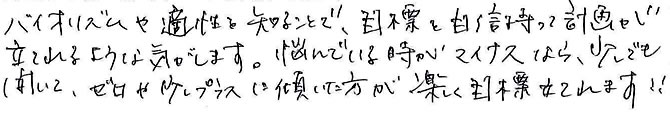 バイオリズムや適性を知ることで、目標を自信持って計画が
立てれるような気がします。悩んでいる時がマイナスなら、少しでも
動いて、ゼロや少しプラスに傾いた方が楽しく目標立てれます!!